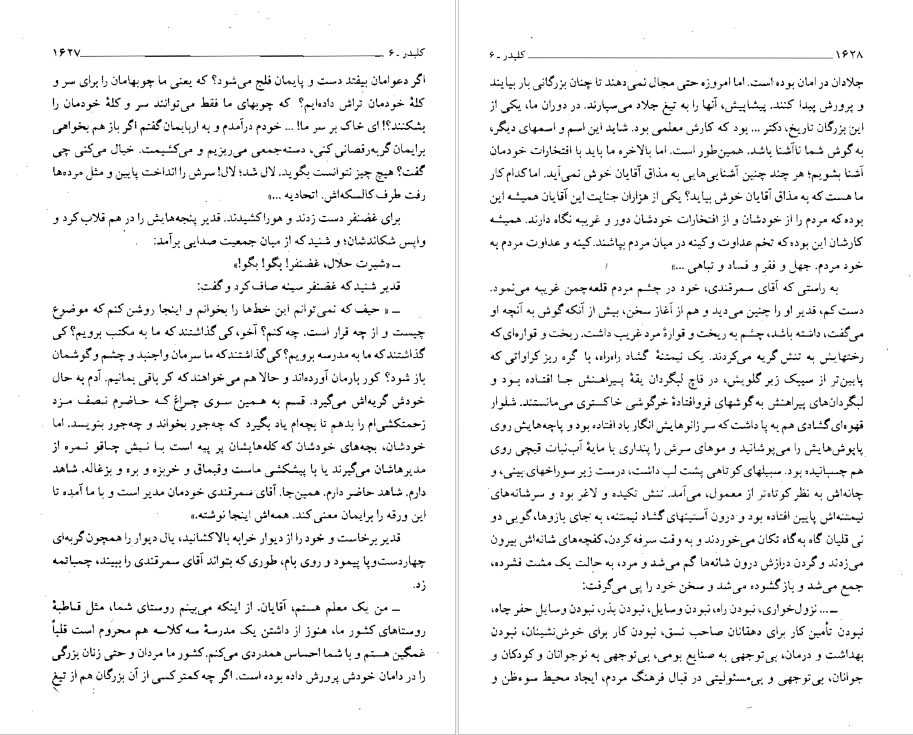 کلیدر ـ ۶ ــــــ ۱۶۲۷
اگر دعوامان بیفتد دست و پایمان فلج می‌شود؟ که یعنی ما چوبهامان را برای سر و
کلهٔ خودمان تراش داده‌ایم؟ که چوبهای ما فقط می‌توانند سر و کلهٔ خودمان را
بشکنند؟! ای خاک بر سر ما! ... خودم درآمدم و به اربابمان گفتم اگر باز هم بخواهی
برایمان گربه‌رقصانی کنی، دسته‌جمعی می‌ریزیم و می‌کشیمت. خیال می‌کنی چی
گفت؟ هیچ چیز نتوانست بگوید. لال شد؛ لال! سرش را انداخت پایین و مثل مرده‌ها
رفت طرف کالسکه‌اش. اتحادیه ...»
برای غضنفر دست زدند و هورا کشیدند. قدیر پنجه‌هایش را در هم قلاب کرد و
واپس شکاندشان؛ و شنید که از میان جمعیت صدایی برآمد:
ــ «شیرت حلال، غضنفر! بگو! بگو!»
قدیر شنید که غضنفر سینه صاف کرد و گفت:
ــ « حیف که نمی‌توانم این خط‌ها را بخوانم و اینجا روشن کنم که موضوع
چیست و از چه قرار است. چه کنم؟ آخر، کی گذاشتند که ما به مکتب برویم؟ کی
گذاشتند که ما به مدرسه برویم؟ کی گذاشتند که ما سرمان واجنبد و چشم و گوشمان
باز شود؟ کور بارمان آورده‌اند و حالا هم می‌خواهند که کر باقی بمانیم. آدم به حال
خودش گریه‌اش می‌گیرد. قسم به همین سوی چراغ که حاضرم نصف مزد
زحمتکشی‌ام را بدهم تا بچه‌ام یاد بگیرد که چه‌جور بخواند و چه‌جور بنویسد. اما
خودشان، بچه‌های خودشان که کله‌هایشان پر پیه است یا نیش چاقو نمره از
مدیرهاشان می‌گیرند یا با پیشکشی ماست و قیماق و خربزه و بره و بزغاله. شاهد
دارم. شاهد حاضر دارم. همین‌جا. آقای سمرقندی خودمان مدیر است و با ما آمده تا
این ورقه را برایمان معنی کند. همه‌اش اینجا نوشته.»
قدیر برخاست و خود را از دیوار خرابه بالا کشانید، یال دیوار را همچون گربه‌ای
چهاردست‌وپا پیمود و روی بام، طوری که بتواند آقای سمرقندی را ببیند، چمباتمه
زد.
ــ من یک معلم هستم، آقایان. از اینکه می‌بینم روستای شما، مثل قاطبهٔ
روستاهای کشور ما، هنوز از داشتن یک مدرسهٔ سه کلاسه هم محروم است قلباً
غمگین هستم و با شما احساس همدردی می‌کنم. کشور ما مردان و حتی زنان بزرگی
را در دامان خودش پرورش داده بوده است. اگر چه کمتر کسی از آن بزرگان هم از تیغ
۱۶۲۸ ــــــ کلیدر ـ ۶
جلادان در امان بوده است. اما امروزه حتی مجال نمی‌دهند تا چنان بزرگانی بار بیایند
و پرورش پیدا کنند. پیشاپیش، آنها را به تیغ جلاد می‌سپارند. در دوران ما، یکی از
این بزرگان تاریخ، دکتر ... بود که کارش معلمی بود. شاید این اسم و اسمهای دیگر،
به گوش شما ناآشنا باشد. همین‌طور است. اما بالاخره ما باید با افتخارات خودمان
آشنا بشویم؛ هر چند چنین آشنایی‌هایی به مذاق آقایان خوش نمی‌آید. اما کدام کار
ما هست که به مذاق آقایان خوش بیاید؟ یکی از هزاران جنایت این آقایان همیشه این
بوده که مردم را از خودشان و از افتخارات خودشان دور و غریبه نگاه دارند. همیشه
کارشان این بوده که تخم عداوت و کینه در میان مردم بپاشند. کینه و عداوت مردم به
خود مردم. جهل و فقر و فساد و تباهی ...»
به راستی که آقای سمرقندی، خود در چشم مردم قلعه‌چمن غریبه می‌نمود.
دست کم، قدیر او را چنین می‌دید و هم از آغاز سخن، بیش از آنکه گوش به آنچه او
می‌گفت، داشته باشد، چشم به ریخت و قوارهٔ مرد غریب داشت. ریخت و قواره‌ای که
رختهایش به تنش گریه می‌کردند. یک نیمتنهٔ گشاد راه‌راه، با گره ریز کراواتی که
پایین‌تر از سیبک زیر گلویش، در قاچ لبگردان یقهٔ پیراهنش جا افتاده بود و
لبگردان‌های پیراهنش به گوشهای فروافتادهٔ خرگوشی خاکستری می‌مانستند. شلوار
قهوه‌ای گشادی هم به پا داشت که سر زانوهایش انگار باد افتاده بود و پاچه‌هایش روی
پاپوش‌هایش را می‌پوشانید و موهای سرش را پنداری با مایهٔ آب‌نبات قیچی روی
هم چسبانیده بود. سبیلهای کوتاهی پشت لب داشت، درست زیر سوراخهای بینی، و
چانه‌اش به نظر کوتاه‌تر از معمول، می‌آمد. تنش تکیده و لاغر بود و سرشانه‌های
نیمتنه‌اش پایین افتاده بود و درون آستینهای گشاد نیمتنه، به جای بازوها، گویی دو
نی قلیان گاه به گاه تکان می‌خوردند و به وقت سرفه کردن، کفچه‌های شانه‌اش بیرون
می‌زدند و گردن درازش درون شانه‌ها گم می‌شد و مرد، به حالت یک مشت فشرده،
جمع می‌شد و باز گشوده می‌شد و سخن خود را پی می‌گرفت:
ــ ... نزول‌خواری، نبودن راه، نبودن وسایل، نبودن بذر، نبودن وسایل حفر چاه،
نبودن تأمین کار برای دهقانان صاحب نسق، نبودن کار برای خوش‌نشینان، نبودن
بهداشت و درمان، بی‌توجهی به صنایع بومی، بی‌توجهی به نوجوانان و کودکان و
جوانان، بی‌توجهی و بی‌مسئولیتی در قبال فرهنگ مردم، ایجاد محیط سوءظن و